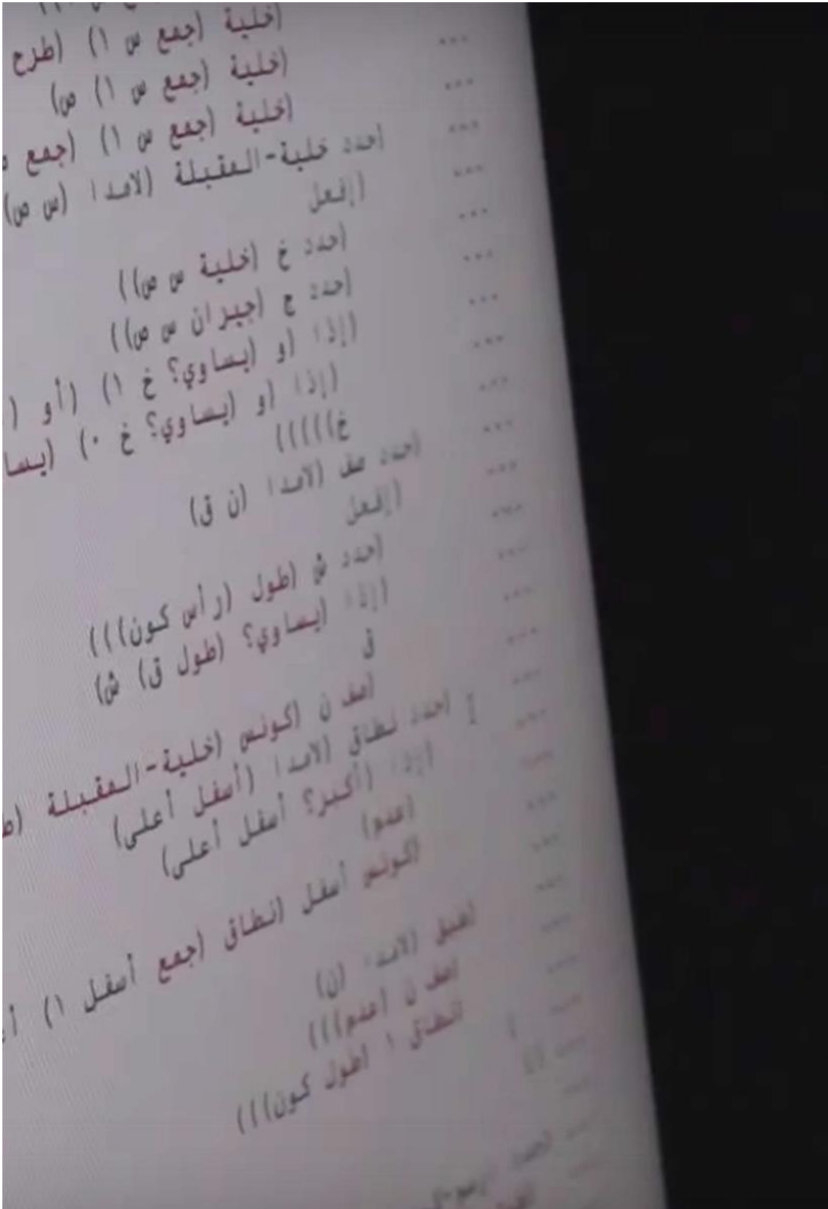 (خلية (جمع س ١) (طرح
(خلية (جمع س ١) ص)
(خلية (جمع س ١) (جمع
(حدد خلية-المقبلة (لامدا (س ص)
(إفعل
(حدد خ (خلية س ص))
(حدد ج (جيران س ص))
(إذا (و (يساوي؟ خ ١) (أو (
(إذا (و (يساوي؟ خ ٠) (يسا
خ)))))
(حدد صف (لامدا (ن ق)
(إفعل
(حدد ش (طول (رأس كون)))
(إذا (يساوي؟ (طول ق) ش)
ق
(صف ن (كونس (خلية-المقبلة (ط
(حدد نطاق (لامدا (أسفل أعلى)
(إذا (أكبر؟ أسفل أعلى)
(عدم)
(كونس أسفل (نطاق (جمع أسفل ١) أ
(طبق (لامدا (ن)
(صف ن (عدم)))
(نطاق ١ (طول كون)))